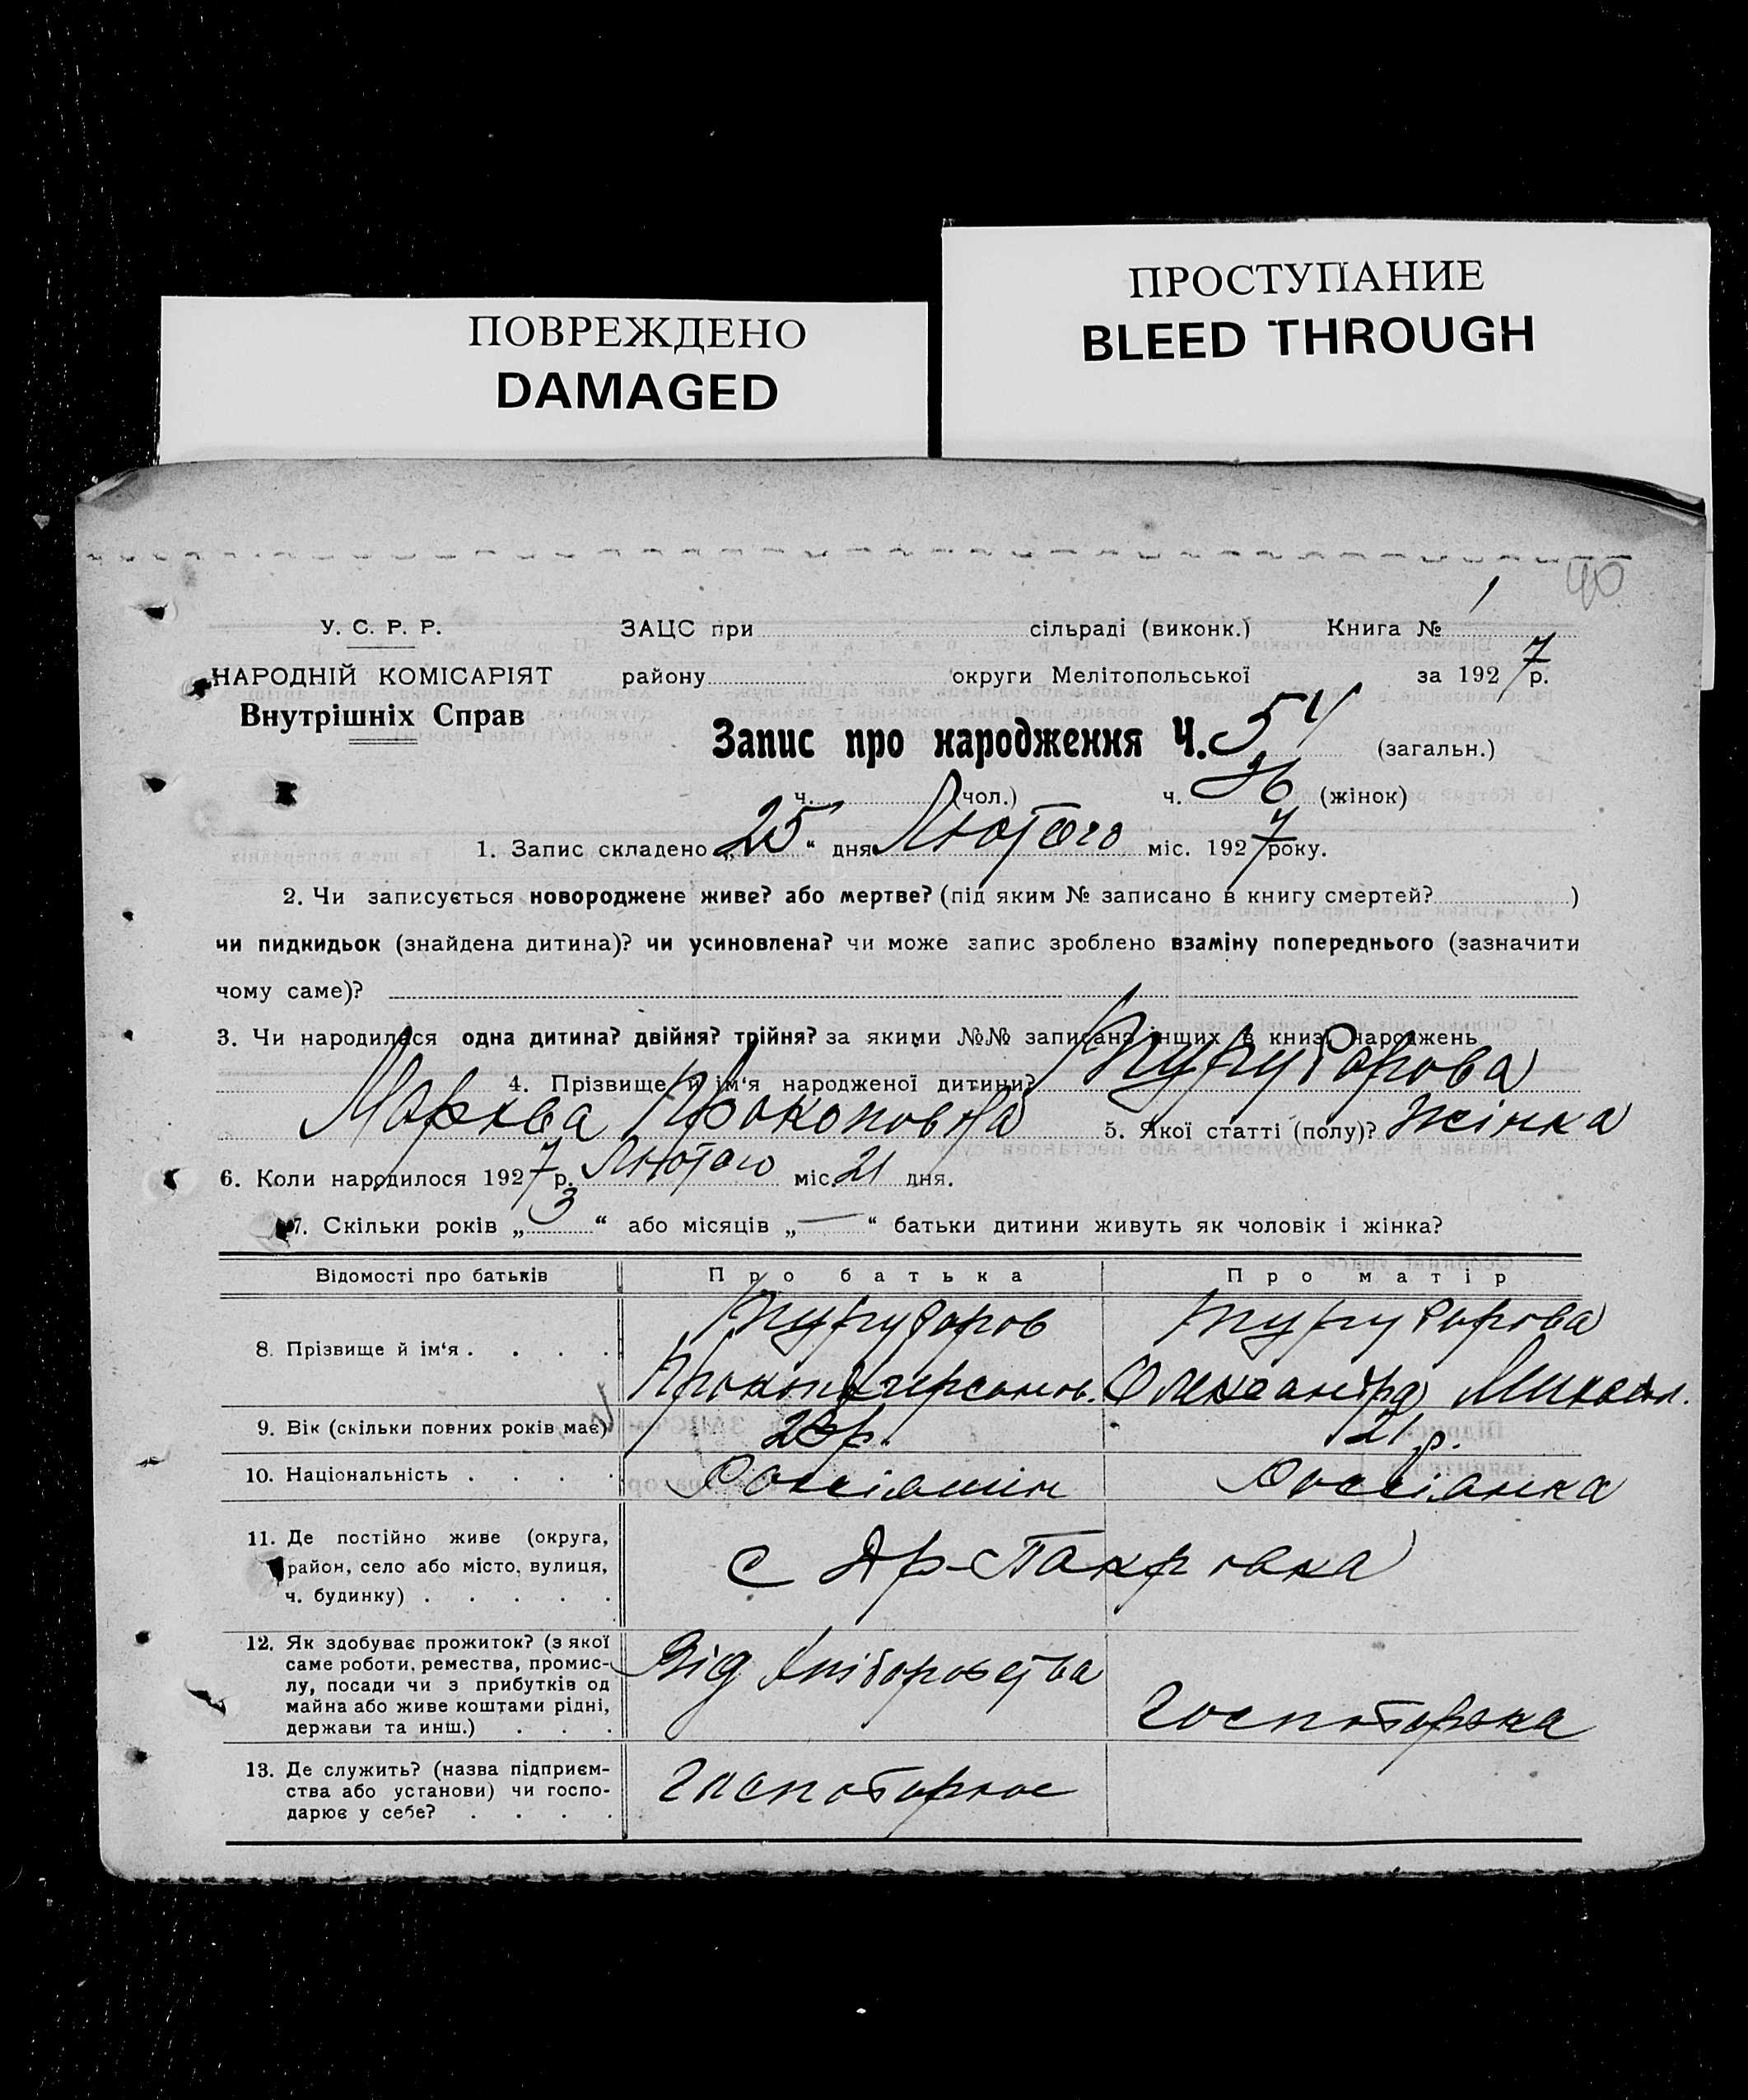 ПОВРЕЖДЕНО
DAMAGED
ПРОСТУПАНИЕ
BLEED THROUGH
40
У. С. Р. Р.
НАРОДНІЙ КОМІСАРІЯТ
Внутрішніх Справ
ЗАЦС при сільраді (виконк.) Книга № 1
району округи Мелітопольської за 1927 р.
Запис про народження Ч. 54 (загальн.)
ч. (чол.) ч. 26 (жінок)
1. Запис складено „25“ дня Лютого міс. 1927 року.
2. Чи записується новороджене живе? або мертве? (під яким № записано в книгу смертей? )
чи пидкидьок (знайдена дитина)? чи усиновлена? чи може запис зроблено взаміну попереднього (зазначити
чому саме)?
3. Чи народилася одна дитина? двійня? трійня? за якими №№ записано інших в книзі народжень
4. Прізвище й ім‘я народженої дитини?
Прокоповна 5. Якої статті (полу)? жінка
6. Коли народилося 1927 р. Лютого міс. 21 дня.
7. Скільки років „3“ або місяців „—“ батьки дитини живуть як чоловік і жінка?
Відомості про батьків Про батька Про матір
8. Прізвище й ім‘я . . . .
Прокоп Олександра
9. Вік (скільки повних років має) 21 р.
10. Національність . . . . Россіянин Россіянка
11. Де постійно живе (округа,
район, село або місто, вулиця,
ч. будинку) . . . . .
с
12. Як здобуває прожиток? (з якої
саме роботи, ремества, промис-
лу, посади чи з прибутків од
майна або живе коштами рідні,
держави та инш.) . . .
Від хліборобства
13. Де служить? (назва підприєм-
ства або установи) чи госпо-
дарює у себе? . . . .